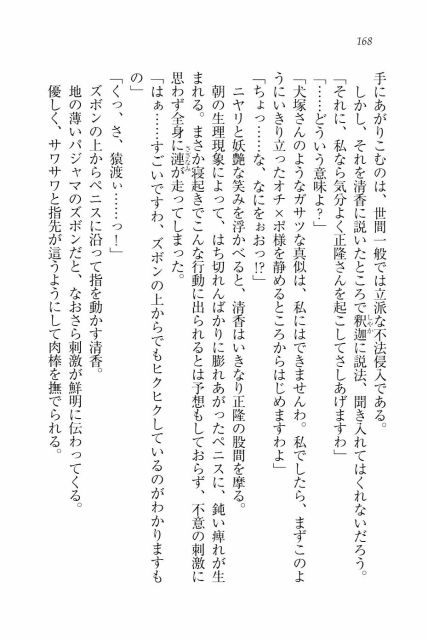 168
手にあがりこむのは、世間一般では立派な不法侵入である。
しかし、それを清香に説いたところで釈迦に説法、聞き入れてはくれないだろう。
「それに、私なら気分よく正隆さんを起こしてさしあげますわ」
「……どういう意味よ？」
「犬塚さんのようなガサツな真似は、私にはできませんわ。私でしたら、まずこのよ
うにいきり立ったオチ×ポ様を静めるところからはじめますわよ」
「ちょっ……な、なにをぉおっ!?」
ニヤリと妖艶な笑みを浮かべると、清香はいきなり正隆の股間を摩る。
朝の生理現象によって、はち切れんばかりに膨れあがったペニスに、鈍い痺れが生
まれる。まさか寝起きでこんな行動に出られるとは予想もしておらず、不意の刺激に
思わず全身に漣が走ってしまった。
「はぁ……すごいですわ、ズボンの上からでもヒクヒクしているのがわかりますも
の」
「くっ、さ、猿渡ぃ……っ！」
ズボンの上からペニスに沿って指を動かす清香。
地の薄いパジャマのズボンだと、なおさら刺激が鮮明に伝わってくる。
優しく、サワサワと指先が這うようにして肉棒を撫でられる。